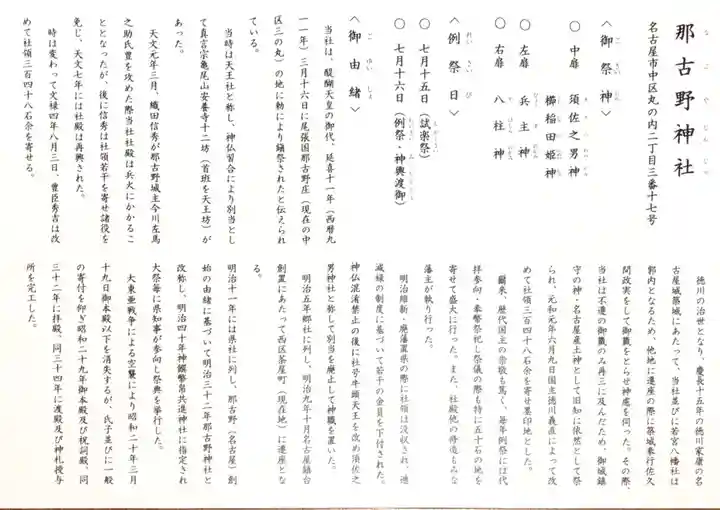 那古野神社
なごやじんじゃ
名古屋市中区丸の内二丁目三番十七号
〈御祭神〉
ごさいじん
〇 中扉 須佐之男神
櫛稲田姫神
〇 左扉 兵主神
〇 右扉 八柱神
〈例祭日〉
れいさいび
〇 七月十五日(試楽祭)
〇 七月十六日(例祭・神輿渡御)
〈御由緒〉
ごゆいしょ
当社は、醍醐天皇の御代、延喜十一年(西暦九
一一年)三月十六日に尾張国那古野庄(現在の中
区三の丸)の地に勅により鎮祭されたと伝えられ
ている。
当時は天王社と称し、神仏習合により別当とし
て真言宗亀尾山安養寺十二坊(首班を天王坊)が
あった。
天文元年三月、織田信秀が那古野城主今川左馬
之助氏豊を攻めた際当社社殿は兵火にかかるこ
ととなったが、後に信秀は社領若干を寄せ諸役を
免じ、天文七年には社殿は再興された。
時は変わって文禄四年八月三日、豊臣秀吉は改
めて社領三百四十八石余を寄せる。
徳川の治世となり、慶長十五年の徳川家康の名
古屋城築城にあたって、当社並びに若宮八幡社は
郭内となるため、他地に遷座の際に築城奉行佐久
間政実をして御籤をとらせ神慮を伺った。その際、
当社は不遷の御籤のみ再三に及んだため、御城鎮
守の神・名古屋産土神として旧知に依然として祭
られ、元和元年六月九日国主徳川義直によって改
めて社領三百四十八石余を寄せ黒印地とした。
爾来、歴代国主の崇敬も篤く、毎年例祭には代
拝参向・奉幣祭祀し祭儀の際も特に五十石の地を
寄せて盛大に行った。また、社殿他の修造もみな
藩主が執り行った。
明治維新、廃藩置県の際に社領は没収され、逓
減禄の制度に基づいて若干の金員を下付された。
神仏混淆禁止の後に社号牛頭天王を改め須佐之
男神社と称して別当を廃止して神職を置いた。
明治五年郷社に列し、明治九年十月名古屋鎮台
創置にあたって西区茶屋町(現在地)に遷座とな
る。
明治十一年には県社に列し、那古野(名古屋)創
始の由緒に基づいて明治三十二年那古野神社と
改称し、明治四十年神饌幣帛共進神社に指定され
大祭毎に県知事が参向し祭典を挙行した。
大東亜戦争による空襲により昭和二十年三月
十九日御本殿以下を消失するが、氏子並びに一般
の寄付を仰ぎ昭和二十九年御本殿及び祝詞殿、同
三十二年に拝殿、同三十四年に渡殿及び神札授与
所を完工した。